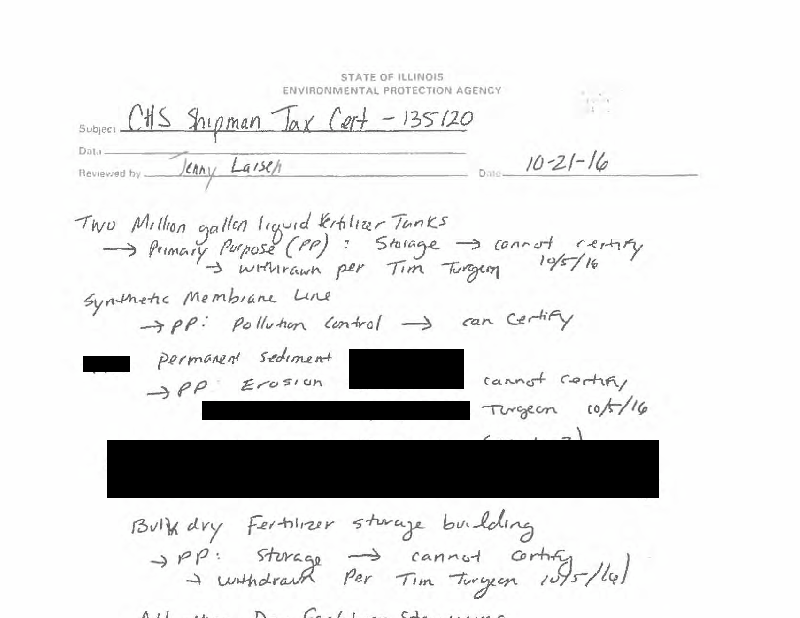 STATE OF ILLINOIS
ENVIRONMENTAL PROTECTION AGENCY
Subject CHS Shipman Tax Cert - 135120
Data
Reviewed by Jenny Larsen Date 10-21-16
Two Million gallon liquid fertilizer Tanks
→ Primary Purpose (PP) : Storage → cannot certify
→ withdrawn per Tim Turgeon 10/5/16
Synthetic Membrane Line
→ PP: Pollution Control → can certify
permanent sediment
→ PP Erosion cannot certify
Turgeon 10/5/16
Bulk dry Fertilizer storage building
→ PP: Storage → cannot certify
→ withdrawn Per Tim Turgeon 10/5/16)